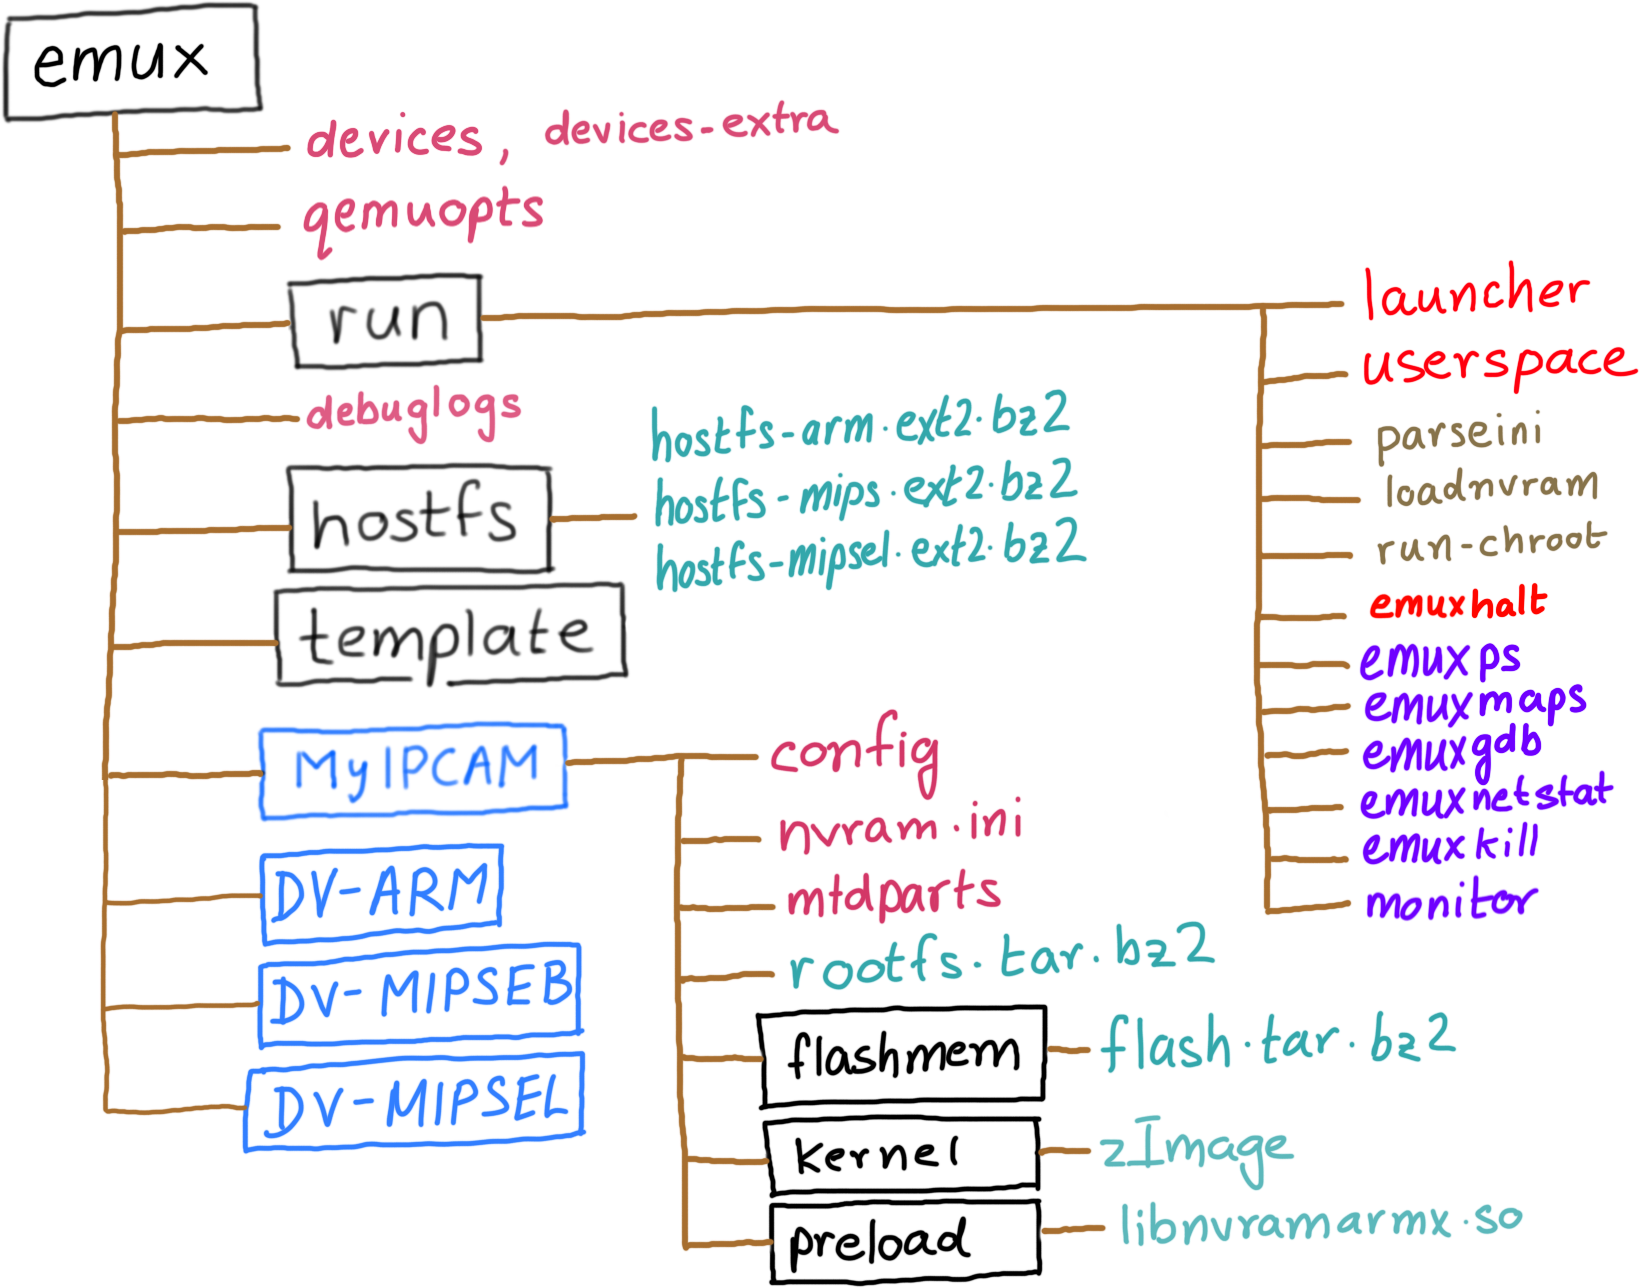 emux
devices, devices-extra
qemuopts
run
launcher
userspace
parseini
loadnvram
run-chroot
emuxhalt
emuxps
emuxmaps
emuxgdb
emuxnetstat
emuxkill
monitor
debuglogs
hostfs
hostfs-arm.ext2.bz2
hostfs-mips.ext2.bz2
hostfs-mipsel.ext2.bz2
template
MyIPCAM
config
nvram.ini
mtdparts
rootfs.tar.bz2
flashmem
flash.tar.bz2
kernel
zImage
preload
libnvramarmx.so
DV-ARM
DV-MIPSEB
DV-MIPSEL